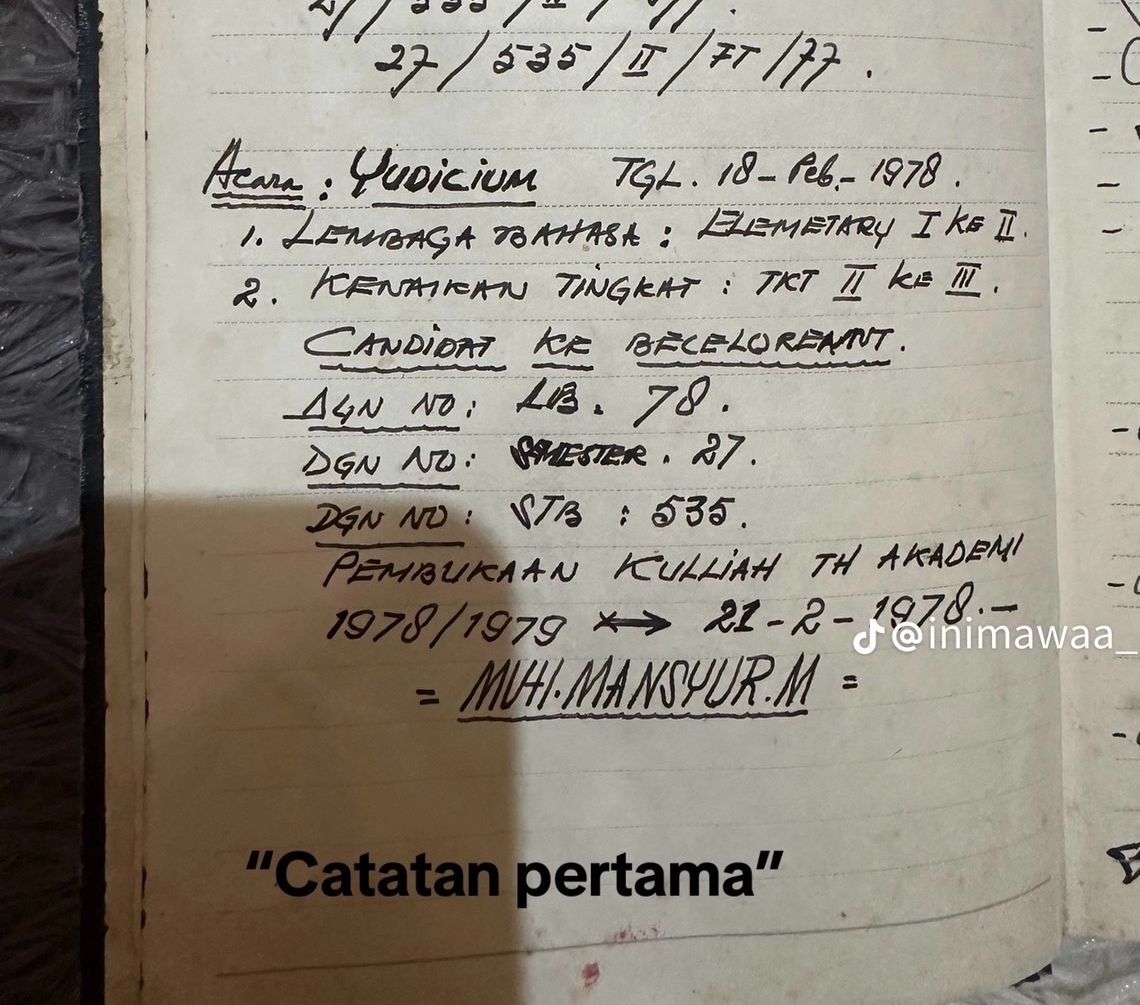 27 / 535 / II / FT / 77 .
Acara : YUDICIUM TGL. 18 - Peb. - 1978 .
1. LEMBAGA BAHASA : ELEMETARY I KE II.
2. KENAIKAN TINGKAT : TKT II KE III .
CANDIDAT KE BECELOREAMNT .
DGN NO : LB . 78 .
DGN NO : SMESTER . 27 .
DGN NO : STB : 535 .
PEMBUKAAN KULLIAH TH AKADEMI
1978/1979 21 - 2 - 1978 . -
@inimawaa_
= MUH.MANSYUR.M =
"Catatan pertama"